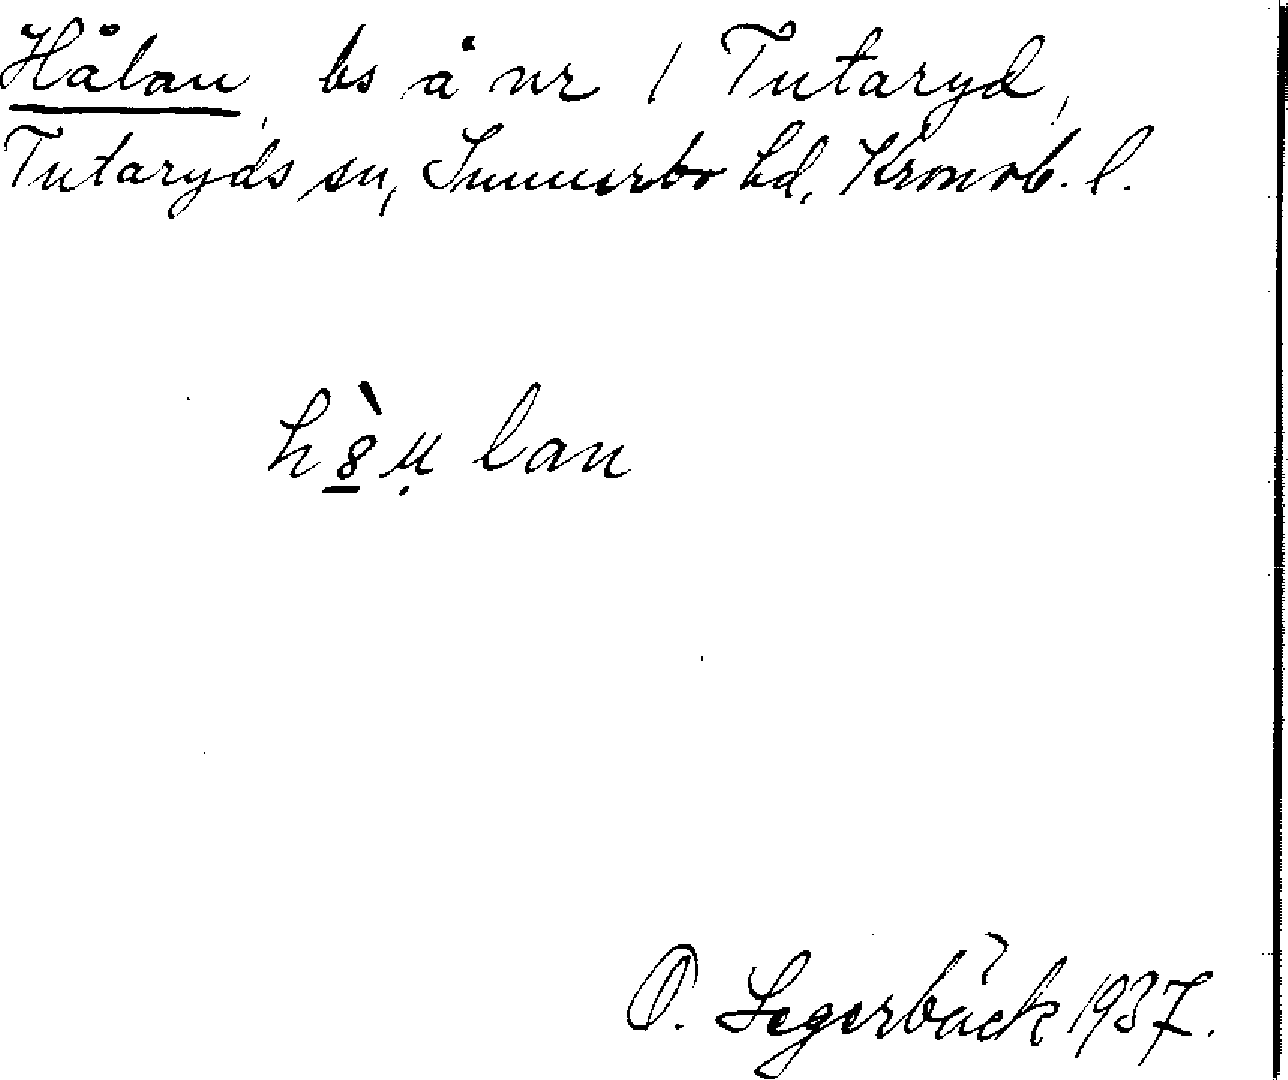 Hålan, bs å nr 1 Tutaryd,
Tutaryds sn, Sunnerbo hd, Kronob. l.
lan
O. Segerbäck 1937.